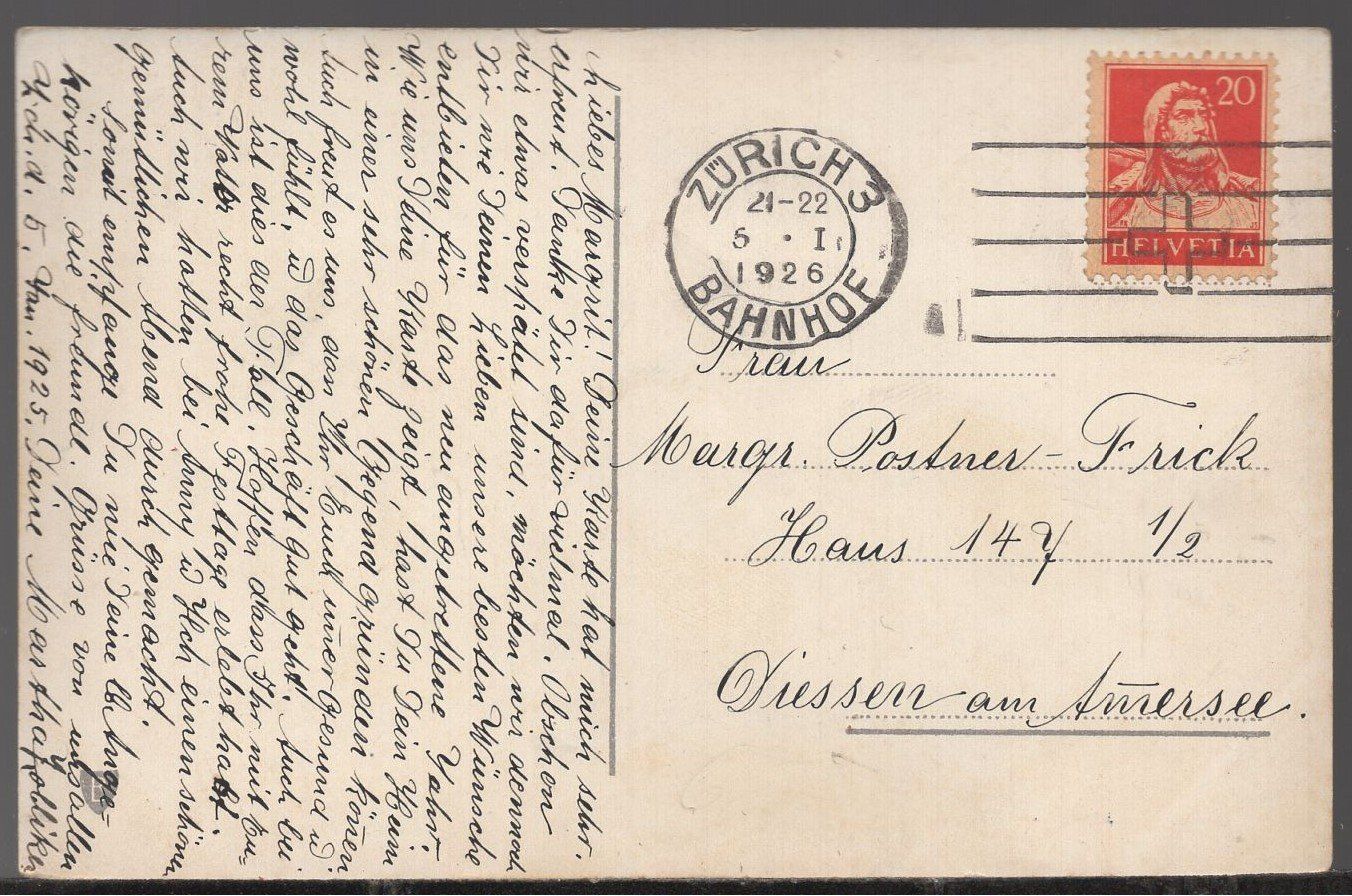 Liebes Margrit! Deine Karte hat mich sehr.
erfreut. Danke Dir dafür vielmal. Obschon
wir etwas verspätet sind, möchten wir dennoch
Dir wie Deinen Lieben unsere besten Wünsche
entbieten für das neu angetrettene Jahr.
Wie uns Deine Karte zeigt, hast Du Dein Heim
in einer sehr schönen Gegend gründen kön̄en
Auch freut es uns, dass Ihr Euch im̄er Gesund u
wohl fühlt, u das Geschäft gut geht. Auch bei
uns ist dies der Fall. Hoffen dass Ihr mit Eu-
rem Vater recht frohe Festtage erlebt habt.
Auch wir hatten bei Anny u Hch einen schönen
gemütlichen Abend durch gemacht.
Somit empfange Du wie Deine lb Ange-
hörigen die freundl. Grüsse von uns allen
Zch. d. 5. Jan. 1925. Deine Martha
ZÜRICH 3
21-22
5 · I
1926
BAHNHOF
20
HELVETIA
Frau
Margr. Postner-Frick
Haus 147 1/2
Diessen am Am̄ersee.